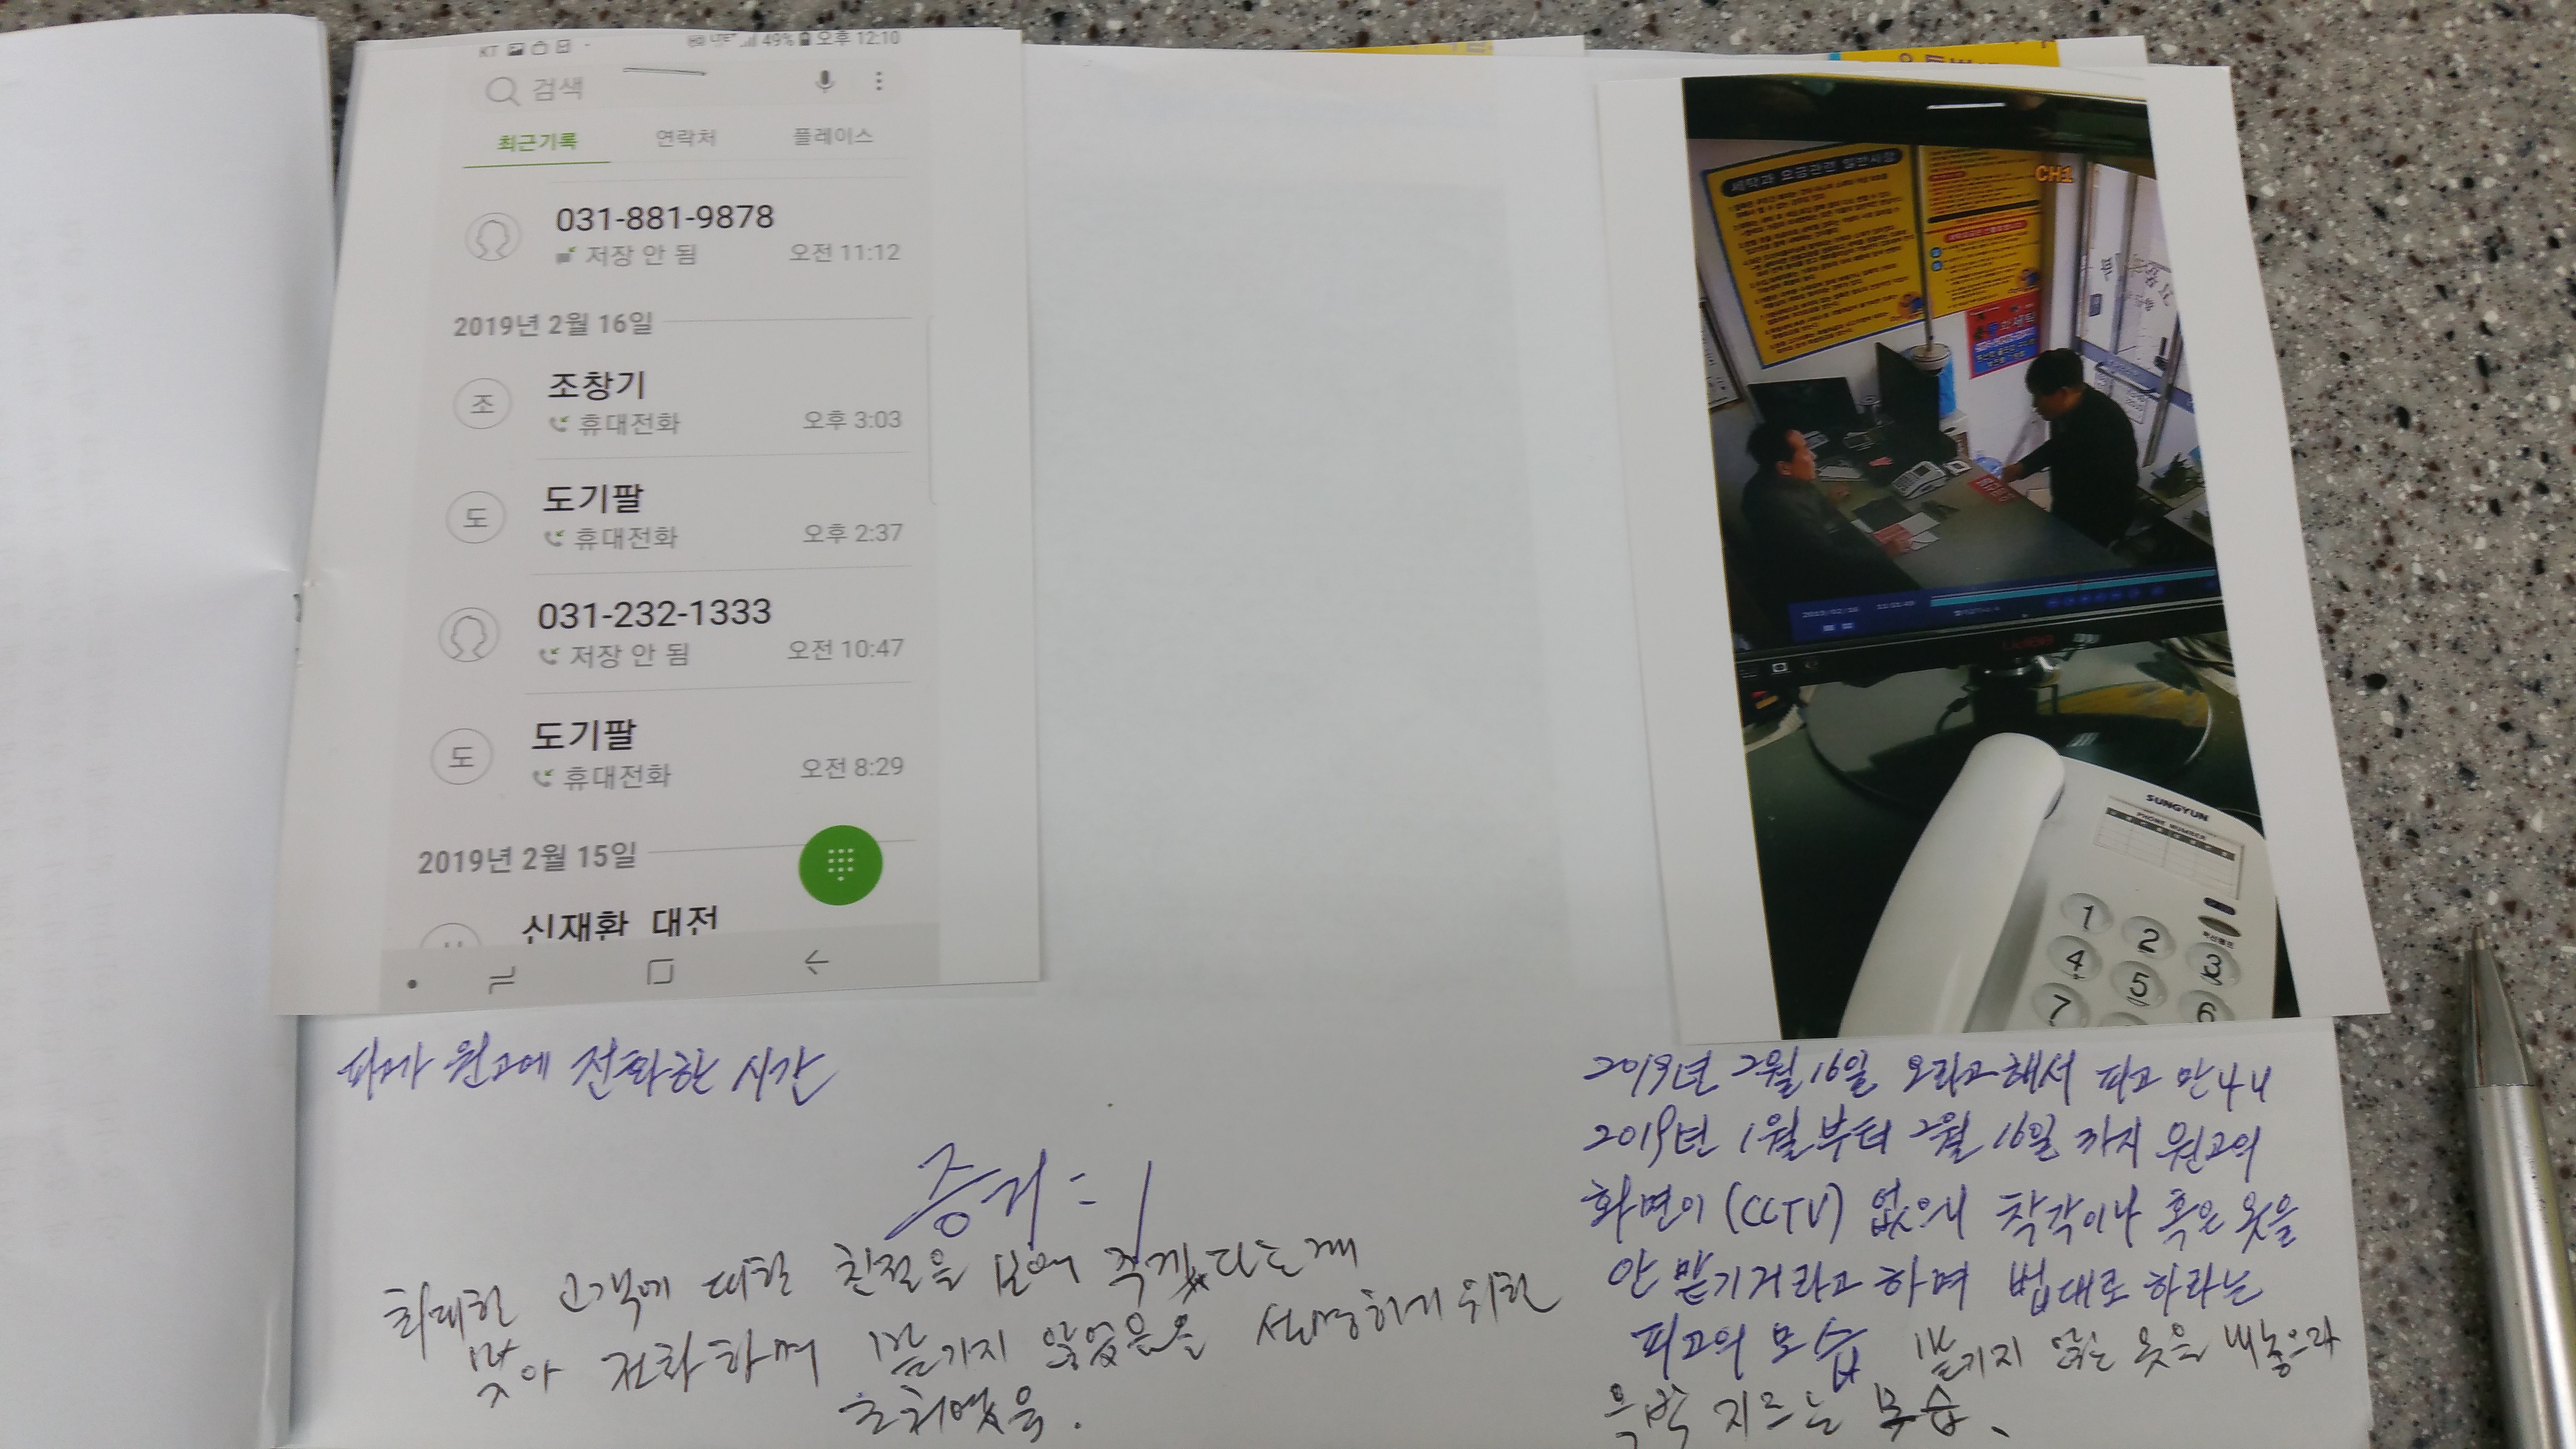 KT LTE 49% 오후 12:10
검색
최근기록 연락처 플레이스
031-881-9878
저장 안 됨 오전 11:12
2019년 2월 16일
조 조창기
휴대전화 오후 3:03
도 도기팔
휴대전화 오후 2:37
031-232-1333
저장 안 됨 오전 10:47
도 도기팔
휴대전화 오전 8:29
2019년 2월 15일
신재환 대전
피고가 원고에 전화한 시간
증거 = 1
최대한 고객에 대한 친절을 보여 주겠다는게
맞아 전화하며 맡기지 않았음을 설명하기 위한
조치였음.
세탁과 요금관련 일반사항
CH1
SUNGYUN
PHONE NUMBER
1 2 3
4 5 6
7
2019년 2월 16일 오라고해서 피고 만나니
2019년 1월부터 2월 16일 까지 원고의
화면이 (CCTV) 없으니 착각이나 혹은 옷을
안 맡긴거라고 하며 법대로 하라는
피고의 모습 맡기지 않은 옷을 내놓으라
윽박 지르는 모습.